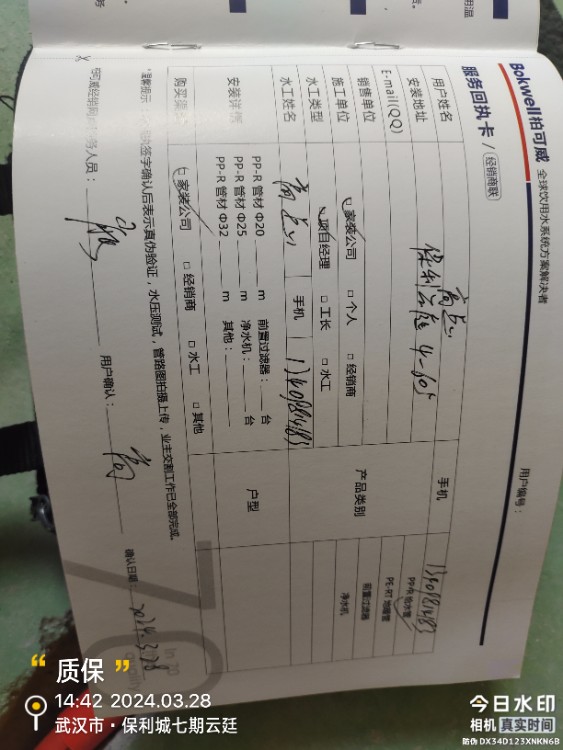 Bokwell柏可威 全球饮用水系统方案解决者
服务回执卡 / 经销商联
用户编号：
用户姓名
手机
安装地址 保利云廷 4-605
E-mail(QQ)
产品类别
PP-R 给水管
PE-RT 地暖管
前置过滤器
净水机
销售单位 □ 家装公司 □ 个人 □ 经销商
施工单位
水工类型 □ 项目经理 □ 工长 □ 水工
水工姓名
手机
安装详情
PP-R 管材 Φ20 m 前置过滤器： 台
PP-R 管材 Φ25 m 净水机： 台
PP-R 管材 Φ32 m 其他：
户型
购买渠道 □ 家装公司 □ 经销商 □ 水工 □ 其他
签字确认后表示真伪验证，水压测试，管路图拍摄上传，业主交割工作已全部完成。
务人员：
用户确认：
确认日期： 2024.3.28
“ 质保 ”
14:42 2024.03.28
武汉市·保利城七期云廷
今日水印
相机 真实时间
防伪 DX34D123XNKN6B